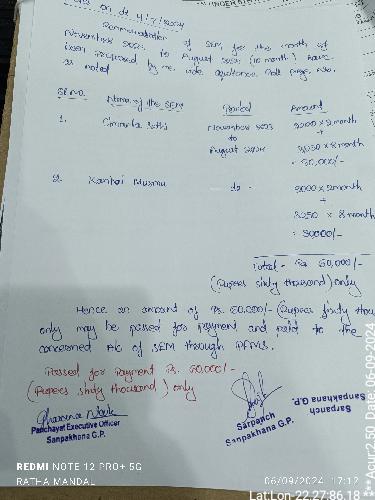 on dt 4/7/2024
Remuneration of SEM for the month of
November 2023 to August 2024 (10 month) have
been proposed by me vide
as noted
Sl No. Name of the SEM Period Amount
1. November 2023
to
August 2024
3000 x 2 month
+
3250 x 8 month
= 30,000/-
2. Kanhai Murmu do - 2000 x 2 month
+
3250 x 8 month
= 30000/-
Total - Rs 60,000/-
(Rupees sixty thousand) only
Hence an amount of Rs. 60,000/- (Rupees sixty thou
only may be passed for payment and paid to the
concerned A/c of SEM through PFMS.
Passed for Payment Rs. 60,000/-
(Rupees sixty thousand) only
Panchayat Executive Officer
Sanpakhana G.P.
Sarpanch
Sanpakhana G.P.
Sarpanch
Sanpakhana G.P.
REDMI NOTE 12 PRO+ 5G
RATHA MANDAL
06/09/2024 17:12
Lat:Lon-22.27:86.18
***Acur2.50 Date: 06-09-2024